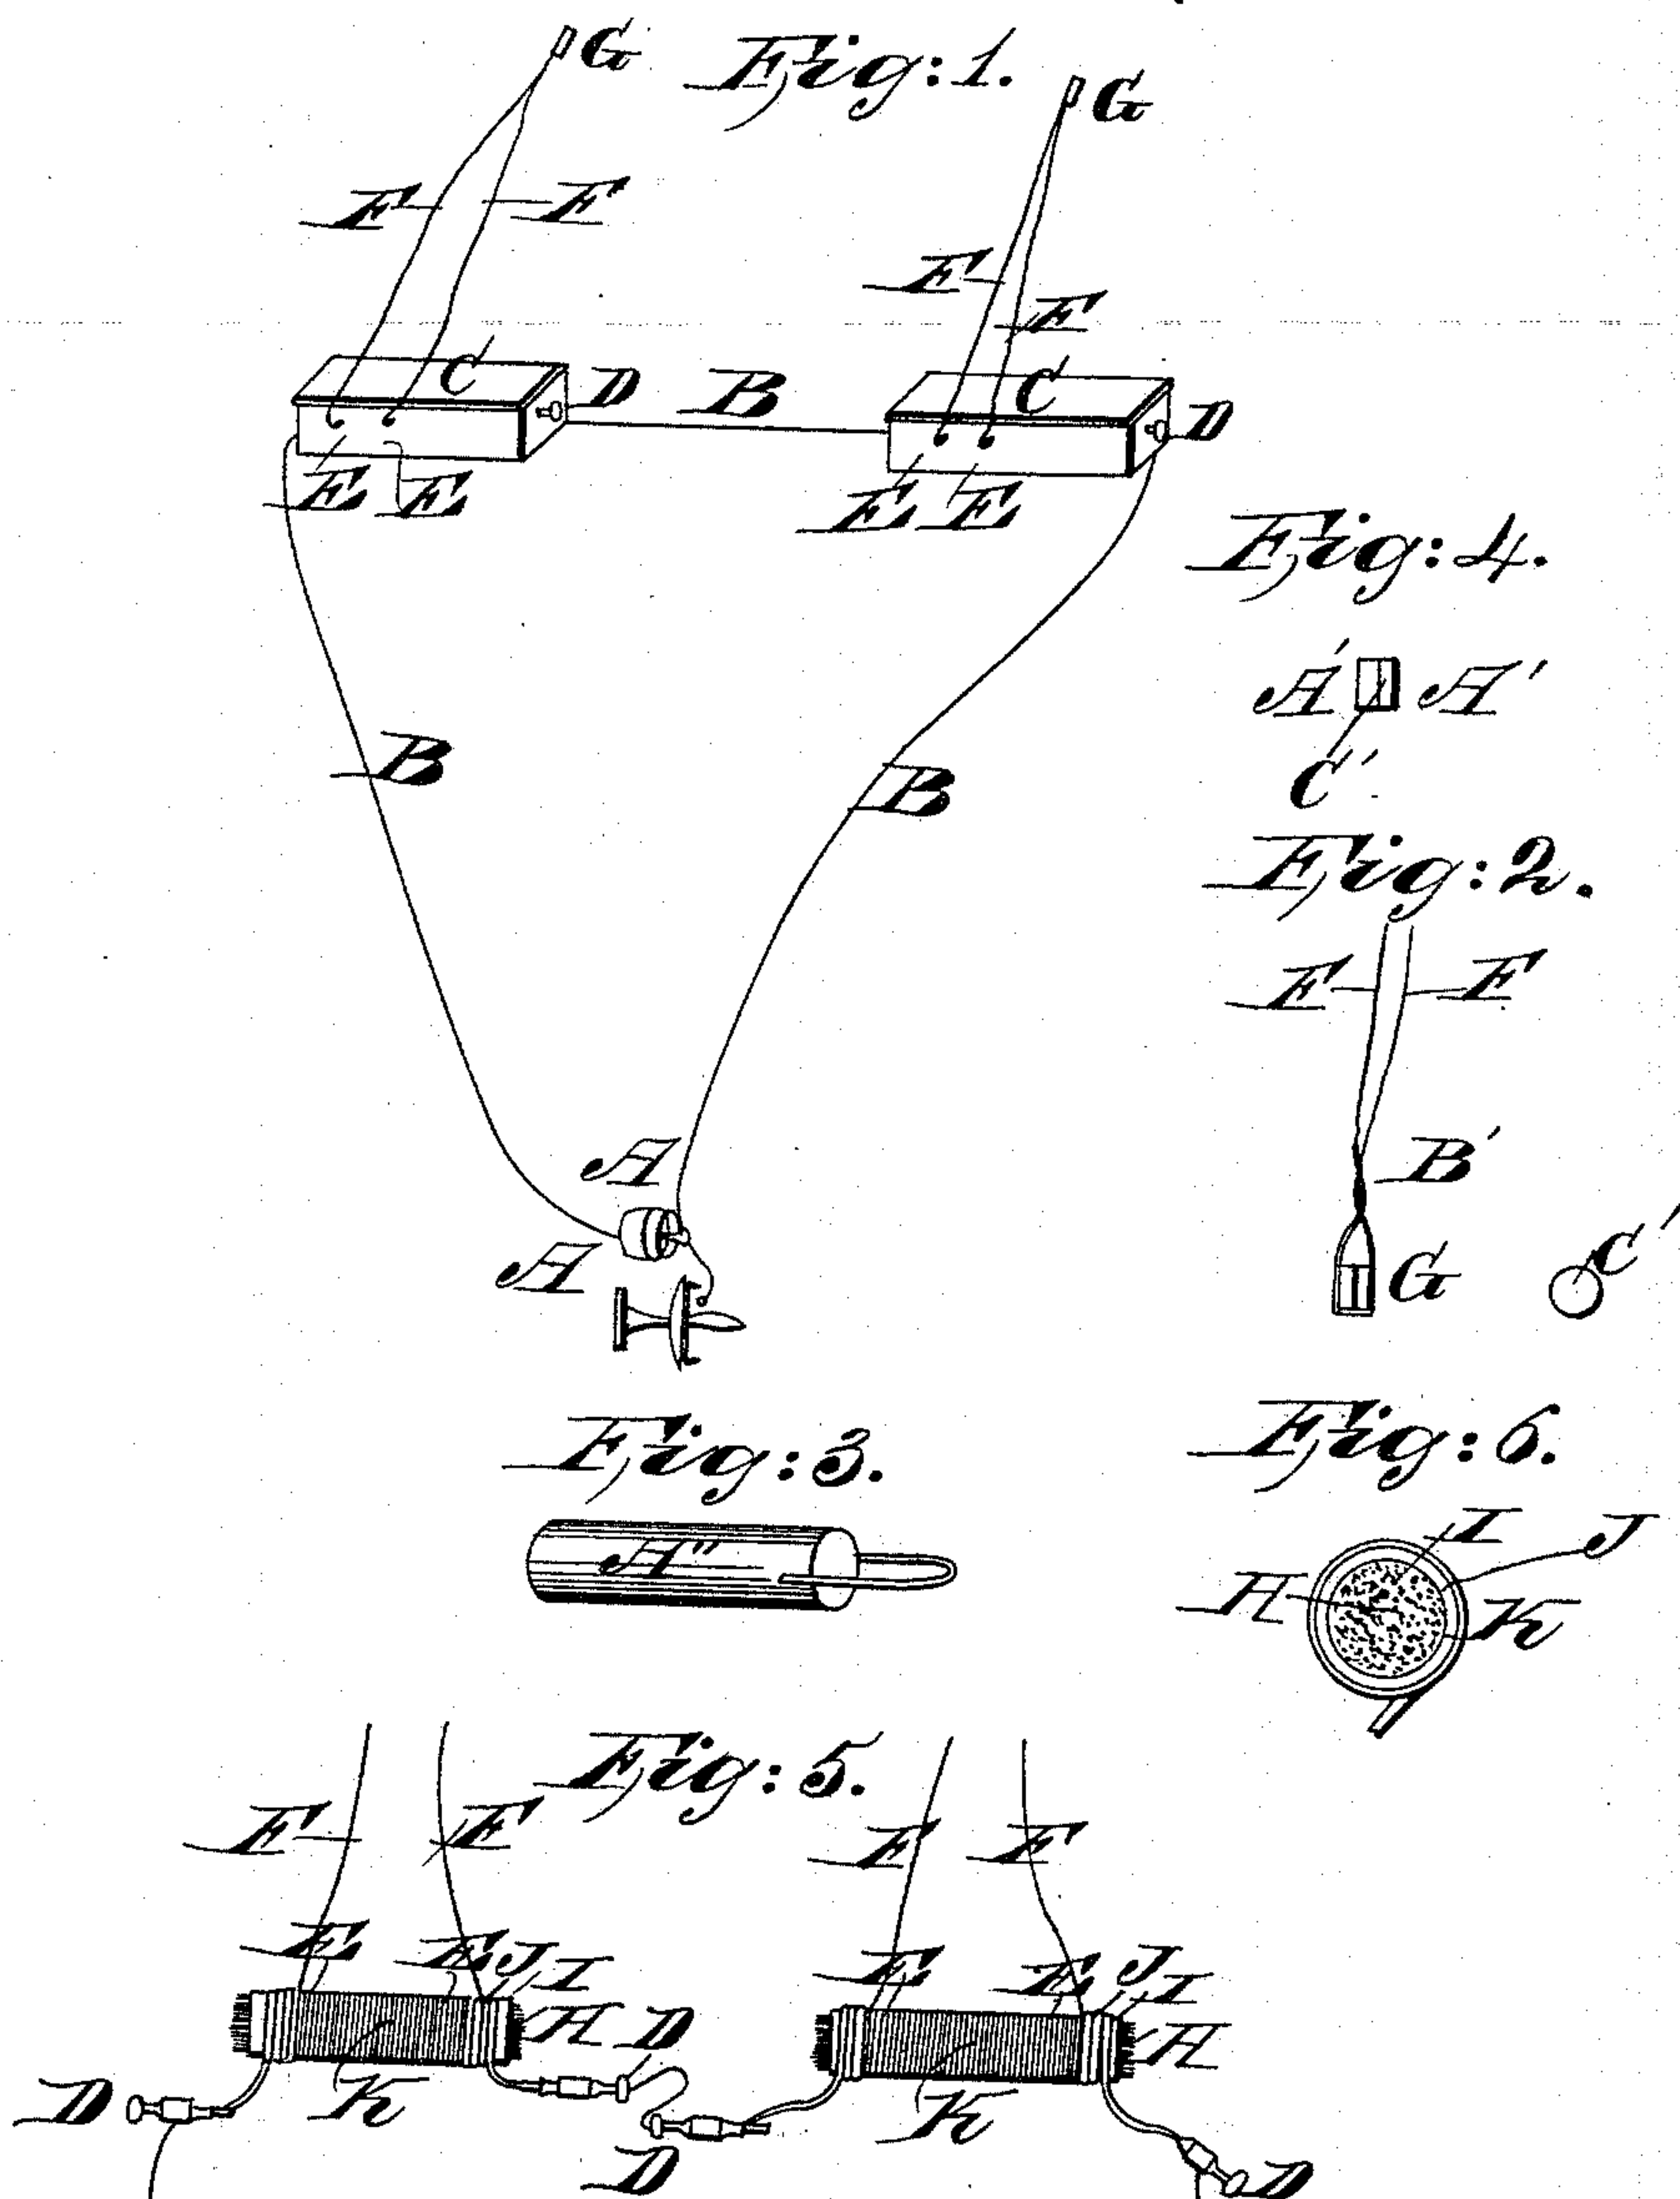 G Fig: 1. G
F F
F F
C D B C D
E E E E
Fig: 4.
A' A'
C'
B B
Fig: 2.
F F
B'
A
A
G C'
Fig: 3.
A"
Fig: 6.
I J
H K
Fig: 5.
F F F F
E E J I E E J I
H D H
D K K
D D